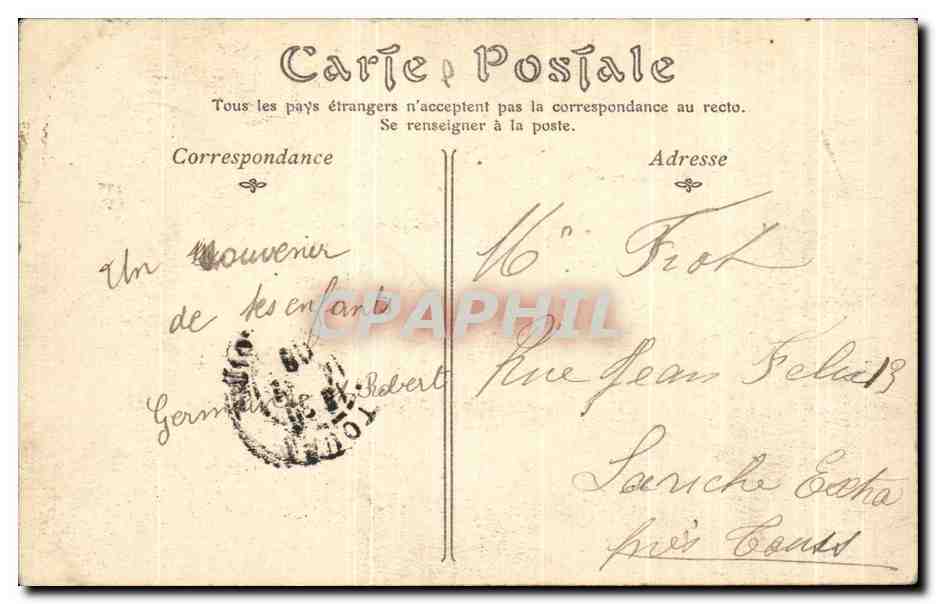 Carte Postale
Tous les pays étrangers n'acceptent pas la correspondance au recto.
Se renseigner à la poste.
Correspondance
Adresse
Un souvenir
de ses enfants
Germaine et Robert
Mr. Frot
Rue Jean Felix 13
Lariche Extra
près Tours
CPAPHIL